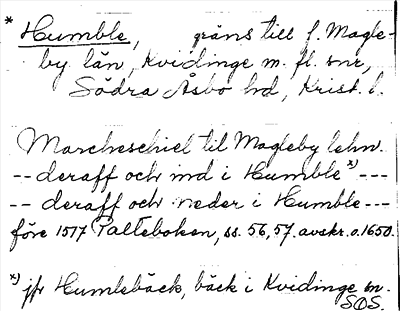 * Humble, gräns till f. Magle-
by län, Kvidinge m. fl. snr,
Södra Åsbo hd, Krist. l.
Marcheschiel til Magleby lehn.
-- deraff och ind i Humble *) ---
-- deraff och neder i Humble ---
före 1517 Palteboken, ss. 56, 57. avskr. o. 1650.
*) jfr Humlebäck, bäck i Kvidinge sn.
SOS.